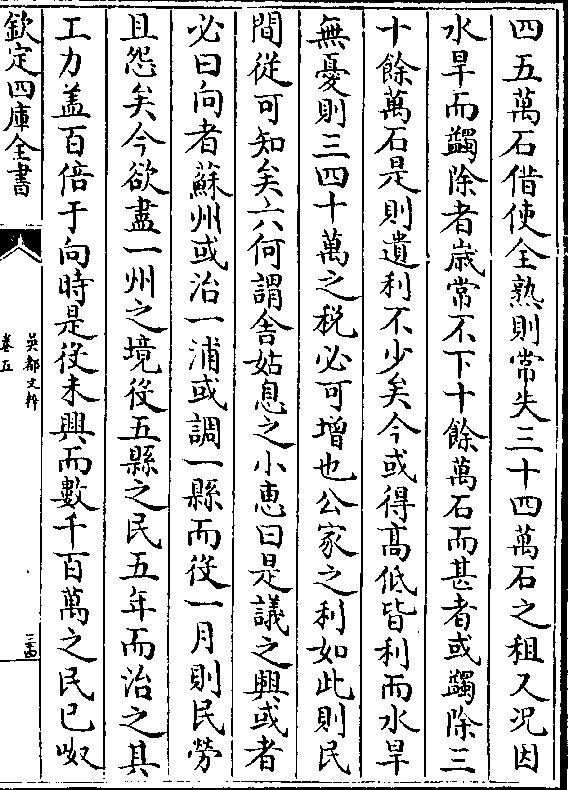 四五萬石借使全熟則常失三十四萬石之租又況因
水旱而蠲除者嵗常不下十餘萬石而甚者或蠲除三
十餘萬石是則遺利不少矣今或得髙低皆利而水旱
無憂則三四十萬之税必可增也公家之利如此則民
間從可知矣六何謂舍姑息之小恵曰是議之興或者
必曰向者蘇州或治一浦或調一縣而役一月則民勞
且怨矣今欲盡一州之境役五縣之民五年而治之其
工力盖百倍于向時是役未興而數千百萬之民已呶
欽定四庫全書
吳都文粹
卷五
三十四